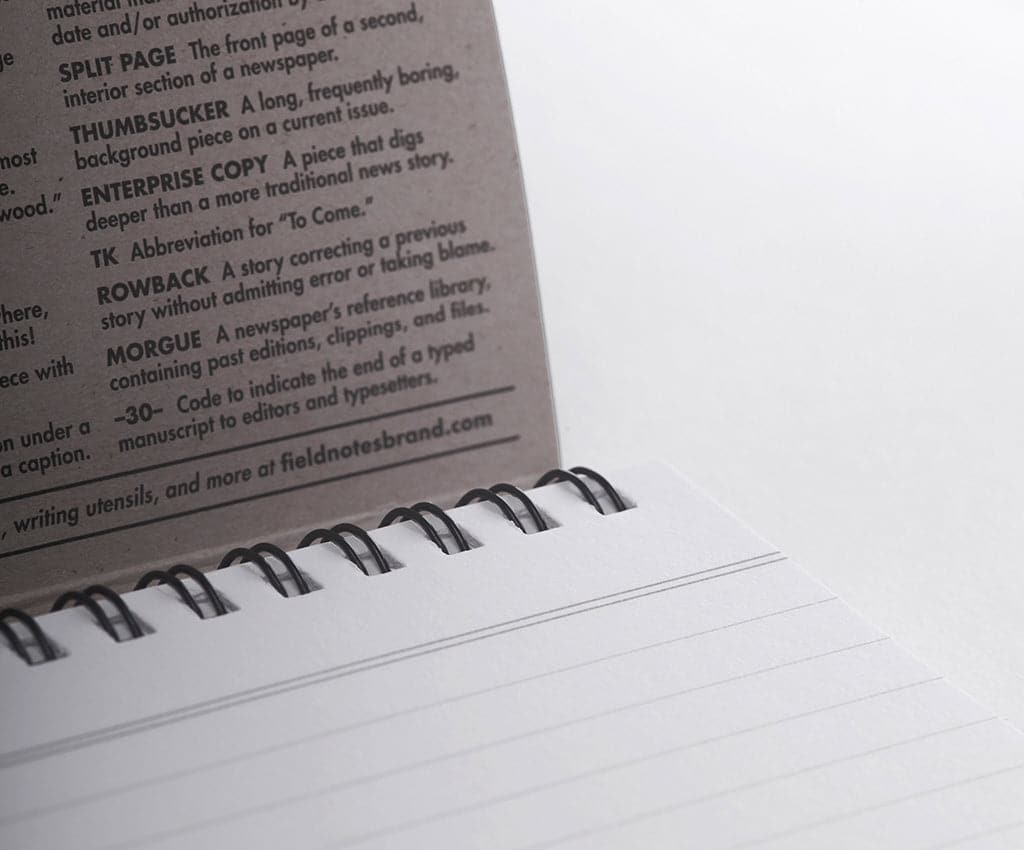 ge
most
e.
wood.”
here,
this!
ece with
on under a
a caption.
material
date and/or authorization by
SPLIT PAGE The front page of a second,
interior section of a newspaper.
THUMBSUCKER A long, frequently boring,
background piece on a current issue.
ENTERPRISE COPY A piece that digs
deeper than a more traditional news story.
TK Abbreviation for “To Come.”
ROWBACK A story correcting a previous
story without admitting error or taking blame.
MORGUE A newspaper’s reference library,
containing past editions, clippings, and files.
–30– Code to indicate the end of a typed
manuscript to editors and typesetters.
, writing utensils, and more at fieldnotesbrand.com